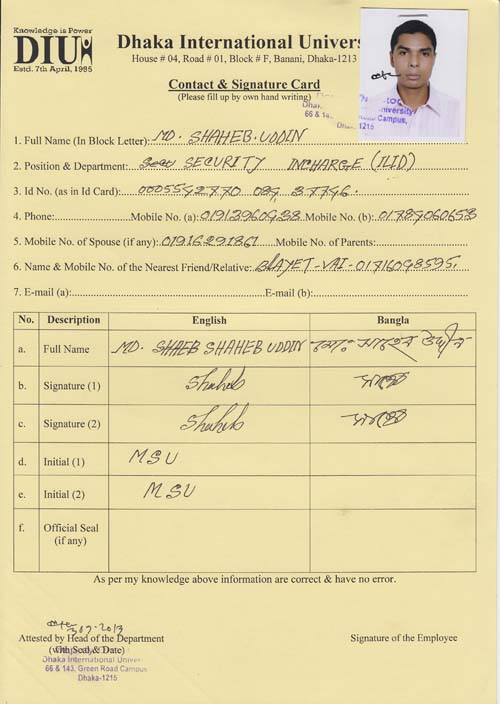 Knowledge is Power
DIU
Estd. 7th April, 1995
Dhaka International Univers
House # 04, Road # 01, Block # F, Banani, Dhaka-1213
Contact & Signature Card
(Please fill up by own hand writing)
66 & 14
University
Campus,
1215
1. Full Name (In Block Letter): MD. SHAHEB. UDDIN
2. Position & Department: SECURITY INCHARGE (ILID)
3. Id No. (as in Id Card): 0005542770 084, 37746.
4. Phone: Mobile No. (a): 01912960938 Mobile No. (b): 01789060653
5. Mobile No. of Spouse (if any): 01916291861 Mobile No. of Parents:
6. Name & Mobile No. of the Nearest Friend/Relative: BLAYET-VAI-01716098595.
7. E-mail (a): E-mail (b):
No. Description English Bangla
a. Full Name MD. SHAEB SHAHEB UDDIN মোঃ সাহেব উদ্দিন
b. Signature (1) Shaheb সাহেব
c. Signature (2) Shaheb সাহেব
d. Initial (1) MSU
e. Initial (2) MSU
f. Official Seal (if any)
As per my knowledge above information are correct & have no error.
09-2013
Attested by Head of the Department Signature of the Employee
(with Seal & Date)
Dhaka International Univer
66 & 143, Green Road Campus
Dhaka-1215